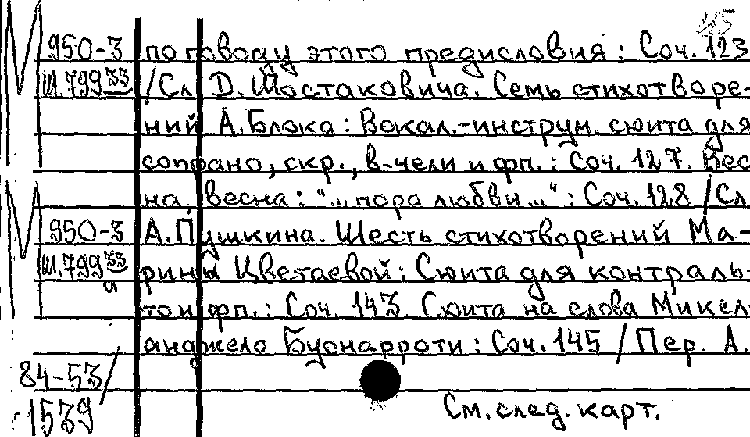 45
950-3 по поводу этого предисловия: Соч. 123
Ш.799 33 /Сл. Д. Шостаковича. Семь стихотворе-
ний А. Блока: Вокал.-инструм. сюита для
сопрано, скр., в-чели и фп.: Соч. 127. Вес
на, весна: "...пора любви...": Соч. 128 /Сл
950-3 А. Пушкина. Шесть стихотворений Ма-
Ш.799 33 а рины Цветаевой: Сюита для контраль-
то и фп.: Соч. 143. Сюита на слова Микел
анджело Буонарроти: Соч. 145 / Пер. А.
84-53/
1539 См. след. карт.